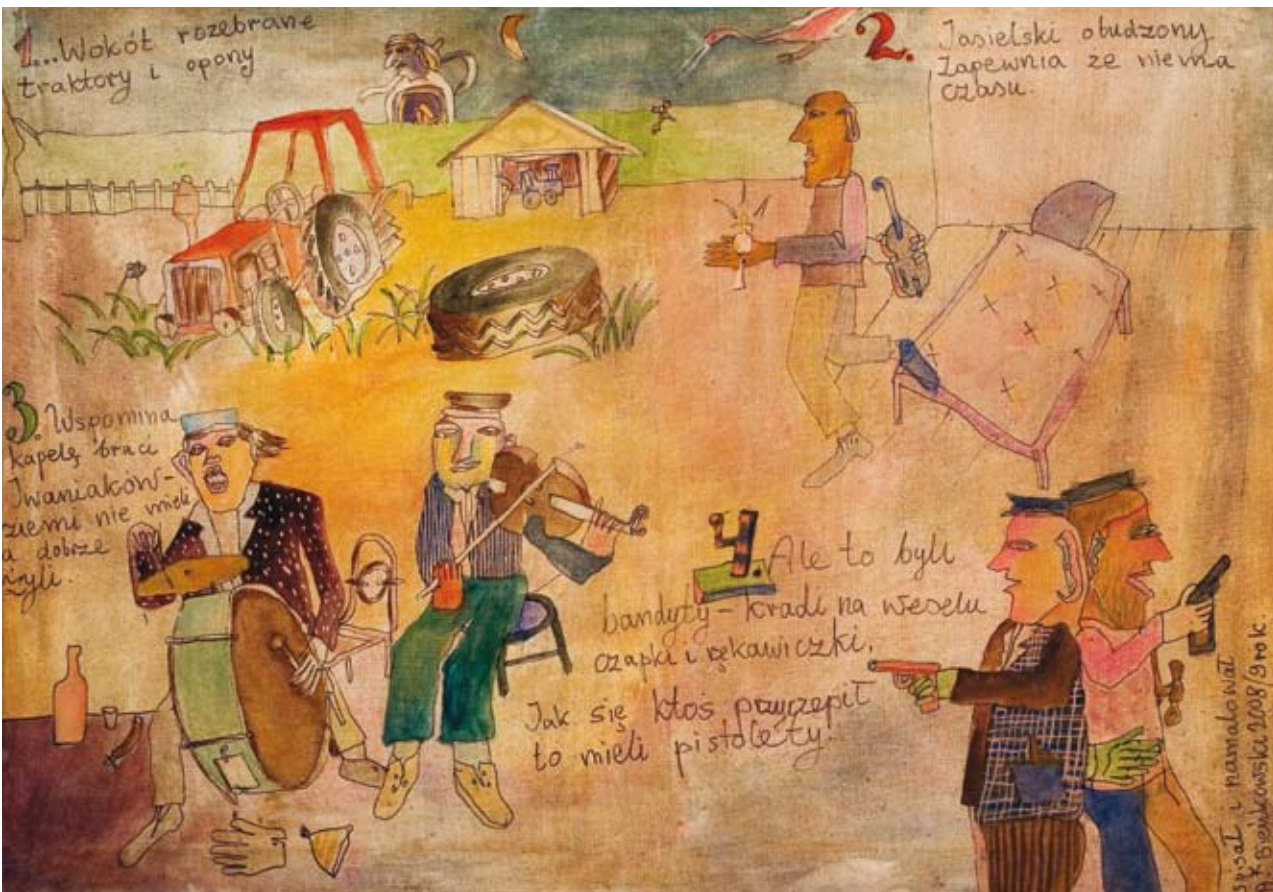 1...Wokół rozebrane
traktory i opony
2.
Jasielski obudzony.
Zapewnia że niema
czasu.
3. Wspomina
kapelę braci
Iwaniaków-
ziemi nie mieli
a dobrze
żyli.
4. Ale to byli
bandyty - kradli na weselu
czapki i rękawiczki.
Jak się ktoś przyczepił
to mieli pistolety!
i namalował
Bieńkowska 2008/9 rok.